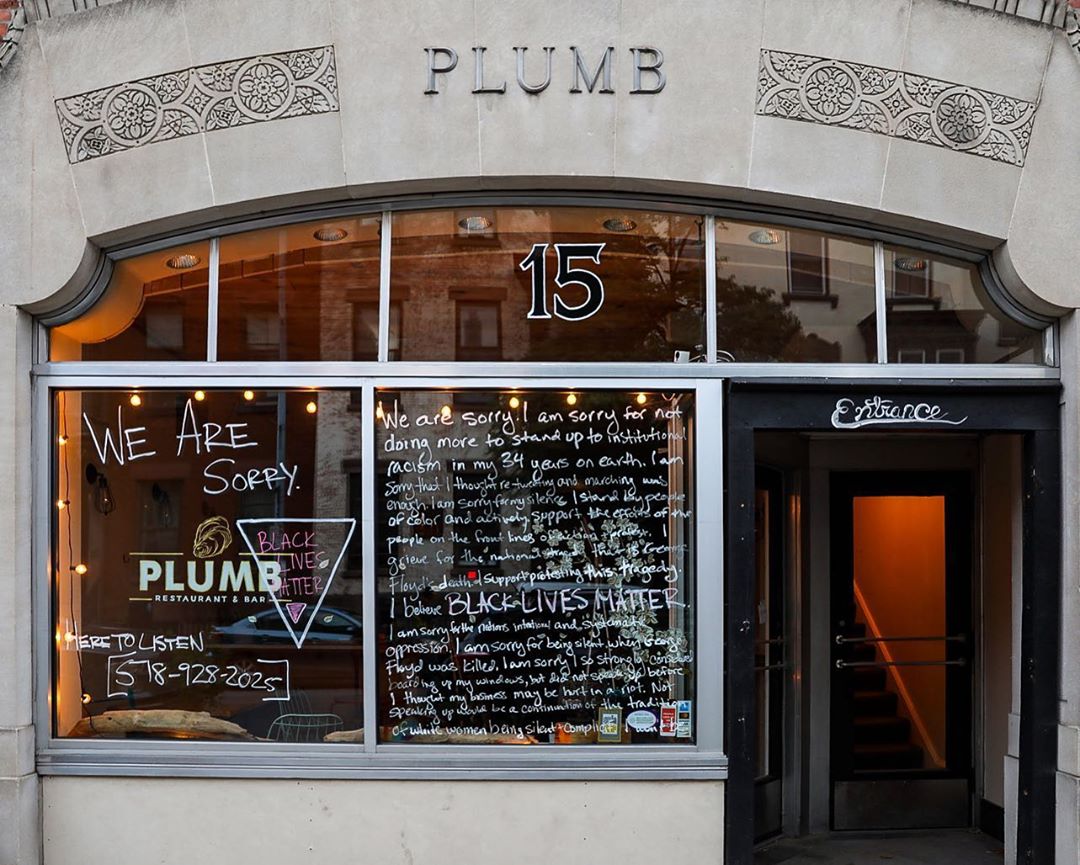 PLUMB
15
Entrance
WE ARE
SORRY.
BLACK
LIVES
MATTER
PLUMB
RESTAURANT & BAR
HERE TO LISTEN
518-928-2025
We are sorry. I am sorry for not
doing more to stand up to institutional
racism in my 34 years on earth. I am
sorry that I thought re-tweeting and marching was
enough. I am sorry for my silence. I stand by people
of color and actively support the efforts of the
people on the front lines of action & protest. I
grieve for the national tragedy that is George
Floyd's death. I support protesting this tragedy.
I believe BLACK LIVES MATTER.
I am sorry for the nations intentional and systematic
oppression. I am sorry for being silent when George
Floyd was killed. I am sorry I so strongly considered
boarding up my windows, but did not speak up before
I thought my business may be hurt in a riot. Not
speaking up would be a continuation of the tradition
of white women being silent + complicit. I won't